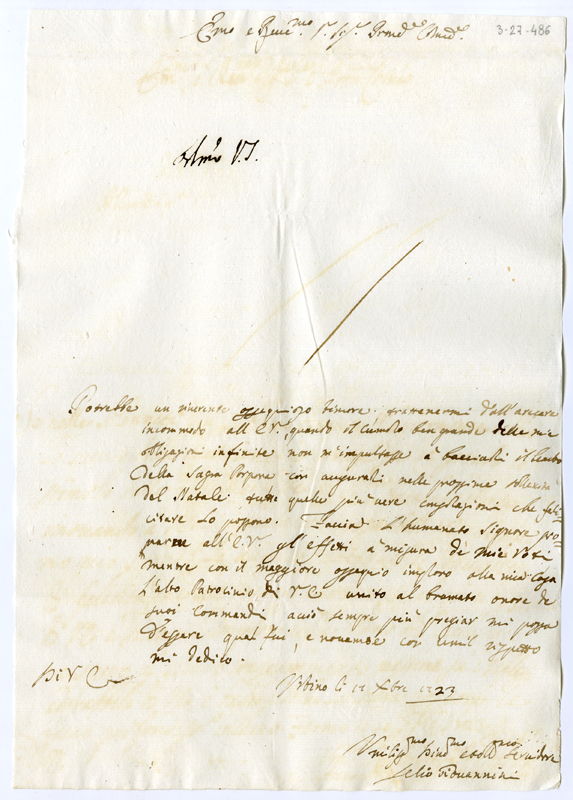 Emo e Reue.mo Sr. Sig. Prone Colmo.
3-27-486
Potrebbe un riuerente ossequioso timore trattenermi dall'arecare
incommodo all'E.V. quando il cumulo ben grande delle mie
obligazioni infinite non m'impultasse à bacciarli il lembo
della Sagra Porpora con augurarli nelle prossime
del Natale tutte quelle più uere consolazioni che feli-
citare lo possono. Faccia l'humanato Signore pro-
uarne all'E.V. gl'effetti à misura de miei Voti
mentre con il maggiore ossequio imploro alla mia Casa
l'alto Patrocinio di V.E. unito al bramato onore de
suoi commandi acciò sempre più pregiar mi possa
d'essere qual fui, e nouamte con umil rispetto
mi dedico.
Di V E
Urbino li 11 Xbre 1723
Umiliss.mo Diuo.mo et oblo. seruidore
Lelio Giouannini